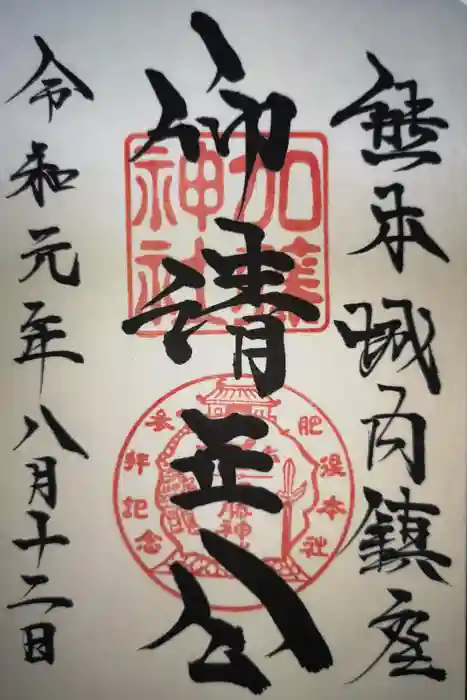 熊本城内鎮座
仰清正公
令和元年八月十二日
加藤
神社
肥後本社
参拝記念